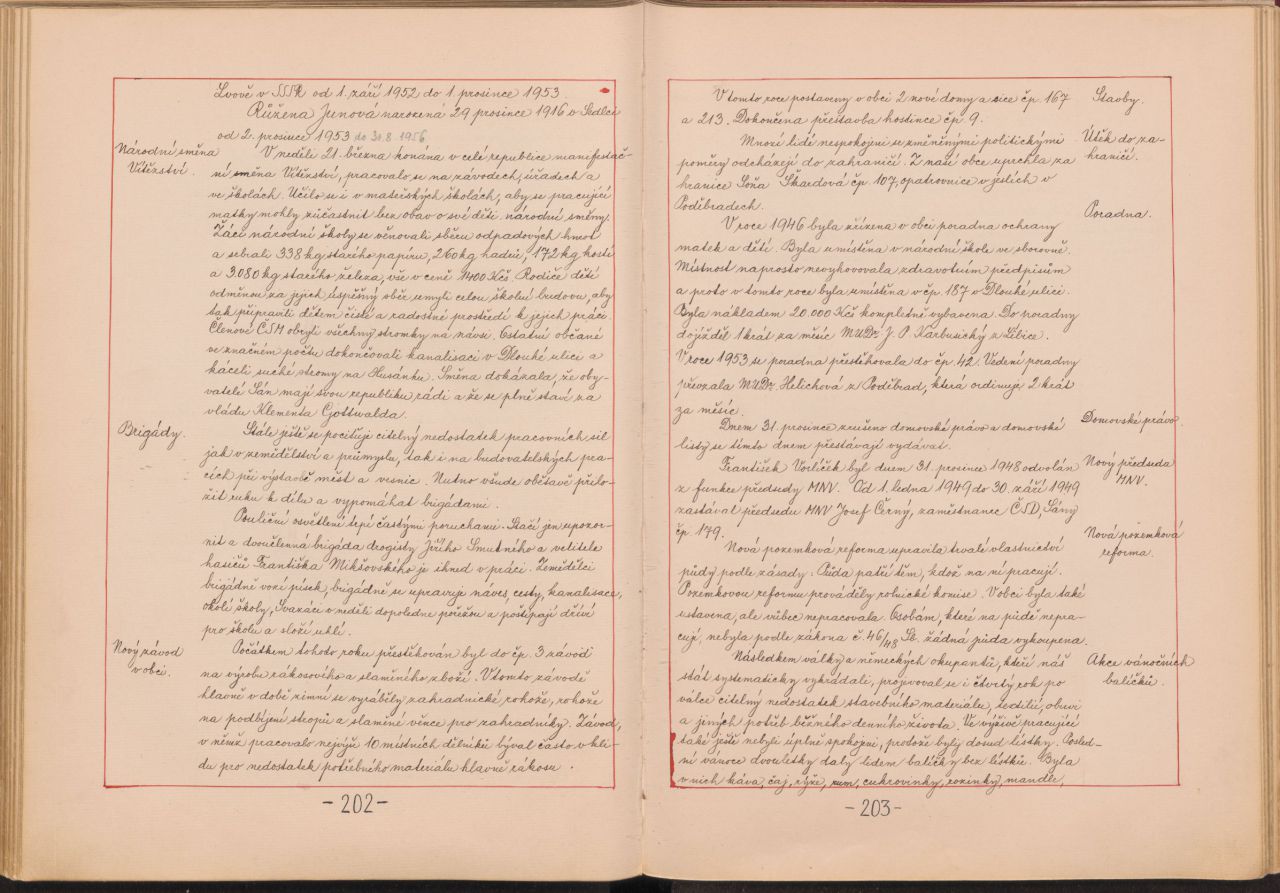 Lvově v SSSR od 1. září 1952 do 1. prosince 1953.
Růžena Junová narozená 29 prosince 1916 v Sedlci
od 2. prosince 1953 do 31.8.1956
Národní směna
Vítězství.
V neděli 21. března konána v celé republice manifestač-
ní směna Vítězství, pracovalo se na závodech, úřadech a
ve školách. Učilo se i v mateřských školách, aby se pracující
matky mohly zúčastnit bez obav o své děti národní směny.
Žáci národní školy se věnovali sběru odpadových hmot
a sebrali 338 kg starého papíru, 260 kg hadrů, 172 kg kostí
a 3.080 kg starého železa, vše v ceně 1400 Kčs. Rodiče dětí
odměnou za jejich úspěšný sběr umyli celou školní budovu, aby
tak připravili dětem čisté a radostné prostředí k jejich práci.
Členové ČSM obryli všechny stromky na návsi. Ostatní občané
ve značném počtu dokončovali kanalisaci v Dlouhé ulici a
káceli suché stromy na Husánku. Směna dokázala, že oby-
vatelé Sán mají svou republiku rádi a že se plně staví za
vládu Klementa Gottwalda.
Brigády.
Stále ještě se pociťuje citelný nedostatek pracovních sil
jak v zemědělství a průmyslu, tak i na budovatelských pra-
cích při výstavbě měst a vesnic. Nutno všude obětavě přilo-
žit ruku k dílu a vypomáhat brigádami.
Pouliční osvětlení trpí častými poruchami. Stačí jen upozor-
nit a dvoučlenná brigáda drogisty Jiřího Smutného a velitele
hasičů Františka Mikšovského je ihned v práci. Zemědělci
brigádně vozí písek, brigádně se upravuje náves, cesty, kanalisace,
okolí školy, Svazáci v neděli dopoledne pořežou a poštípají dříví
pro školu a složí uhlí.
Nový závod
v obci.
Počátkem tohoto roku přestěhován byl do čp. 3 závod
na výrobu rákosového a slaměného zboží. V tomto závodě
hlavně v době zimní se vyráběly zahradnické rohože, rohože
na podbíjení stropů a slaměné věnce pro zahradníky. Závod,
v němž pracovalo nejvýše 10 místních dělníků býval často v kli-
du pro nedostatek potřebného materiálu hlavně rákosu.
-202-
V tomto roce postaveny v obci 2 nové domy a sice čp. 167
a 213. Dokončena přestavba hostince čp. 9.
Stavby.
Mnozí lidé nespokojeni se změněnými politickými
poměry odcházejí do zahraničí. Z naší obce uprchla za
hranice Soňa Škardová čp. 107, opatrovnice v jeslích v
Poděbradech.
Útěk do za-
hraničí.
Poradna.
V roce 1946 byla zřízena v obci poradna ochrany
matek a dětí. Byla umístěna v národní škole ve sborovně.
Místnost naprosto nevyhovovala zdravotním předpisům
a proto v tomto roce byla umístěna v čp. 187 v Dlouhé ulici.
Byla nákladem 20.000 Kčs kompletně vybavena. Do poradny
dojížděl 1 krát za měsíc MUDr. J. P. Karbusický z Libice.
V roce 1953 se poradna přestěhovala do čp. 42. Vedení poradny
převzala MUDr. Helichová z Poděbrad, která ordinuje 2 krát
za měsíc.
Dnem 31. prosince zrušeno domovské právo a domovské
listy se tímto dnem přestávají vydávat.
Domovské právo.
František Voříšek byl dnem 31. prosince 1948 odvolán
z funkce předsedy MNV. Od 1. ledna 1949 do 30. září 1949
zastával předsedu MNV Josef Černý, zaměstnanec ČSD, Sány
čp 179.
Nový předseda
MNV.
Nová pozemková reforma upravila trvalé vlastnictví
půdy podle zásady. Půda patří těm, kdož na ní pracují.
Pozemkovou reformu prováděly rolnické komise. V obci byla také
ustavena, ale vůbec nepracovala. Osobám, které na půdě nepra-
cují, nebyla podle zákona č. 46/48 Sb. žádná půda vykoupena.
Nová pozemková
reforma.
Následkem války a německých okupantů, kteří náš
stát systematicky vykrádali, projevoval se i čtvrtý rok po
válce citelný nedostatek stavebního materiálu, textilií, obuvi
a jiných potřeb běžného denního života. Ve výživě pracující
také ještě nebyli úplně spokojeni, protože byly dosud lístky. Posled-
ní vánoce dvouletky daly lidem balíčky bez lístků. Byla
v nich káva, čaj, rýže, rum, cukrovinky, rozinky, mandle,
Akce vánočních
balíčků.
-203-